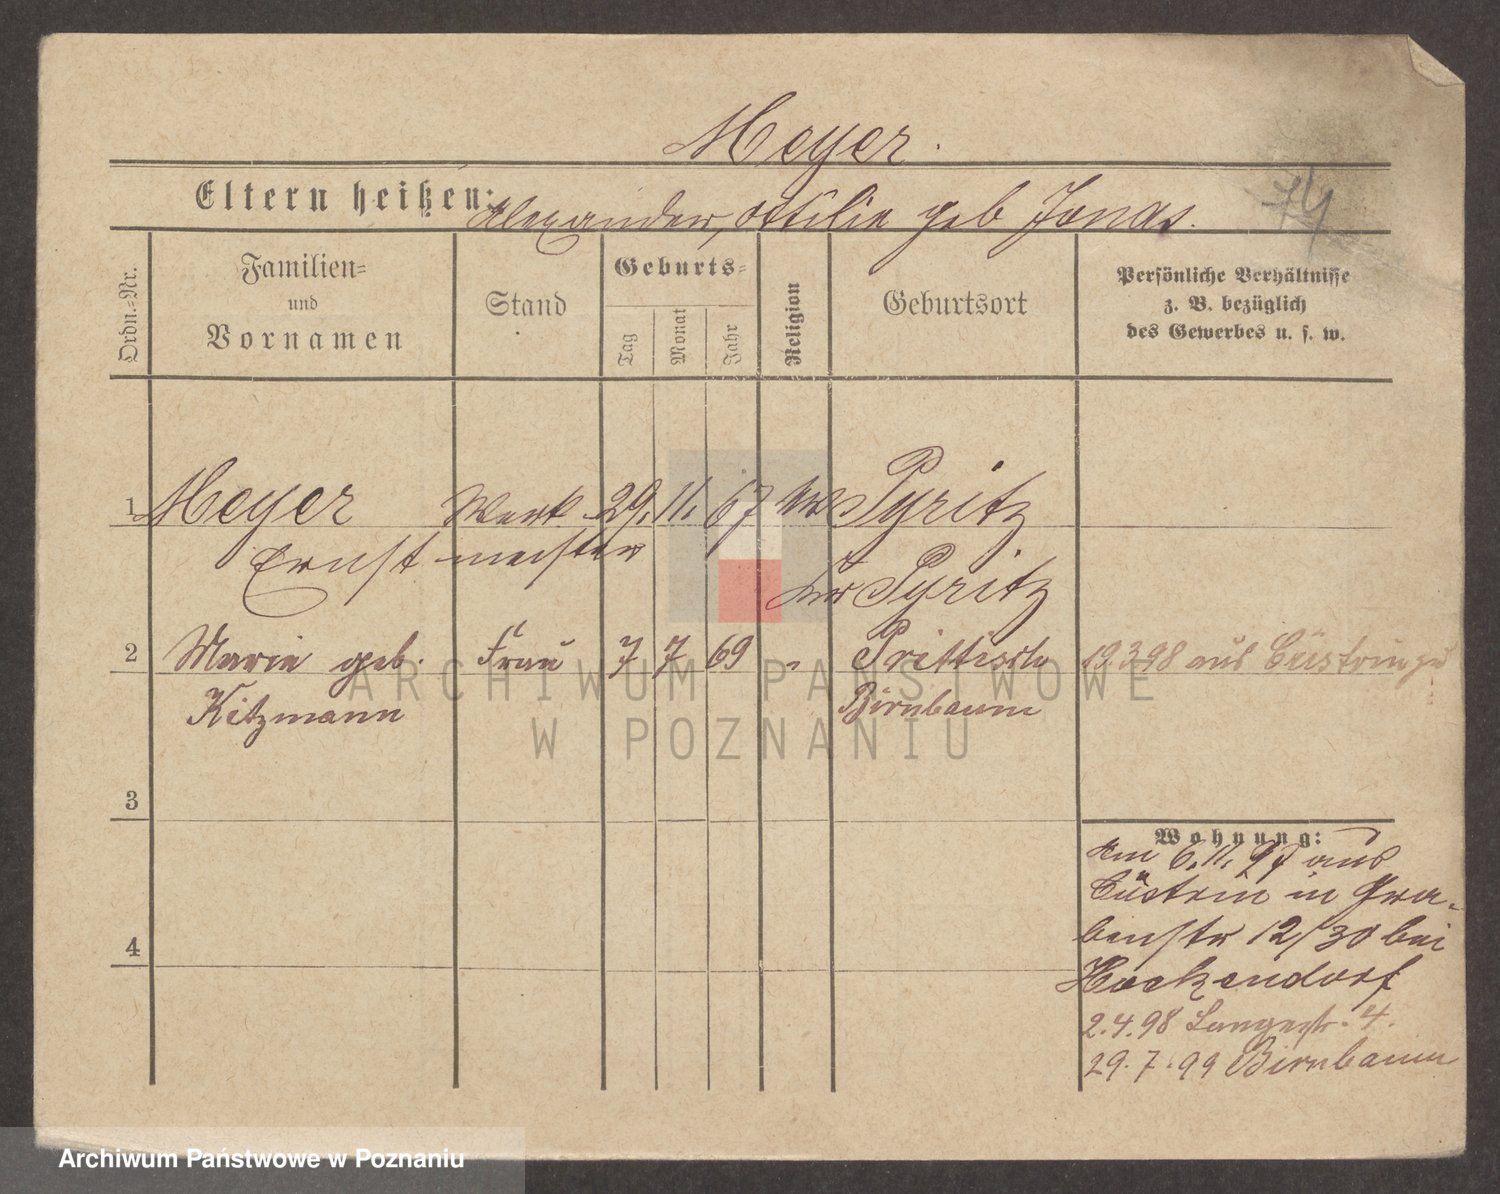 Meyer.
Eltern heißen: Alexander, Ottilie geb Jonas.
74
Ordn.-Nr.
Familien-
und
Vornamen
Stand
Geburts-
Tag
Monat
Jahr
Religion
Geburtsort
Persönliche Verhältnisse
z. B. bezüglich
des Gewerbes u. s. w.
1 Meyer Werk- 29. 11. 67 Pyritz
Ernst meister
Kr Pyritz
2 Marie geb. Frau 7 7 69 " Prittisch 19.3.98 aus Cüstrin zu
Kitzmann Birnbaum
3
Wohnung:
am 6.11.97 aus
Cüstrin in Gra-
benstr 12/30 bei
Hockendorf
4
2.4.98 Langestr. 4.
29.7.99 Birnbaum
ARCHIWUM PAŃSTWOWE
W POZNANIU
Archiwum Państwowe w Poznaniu